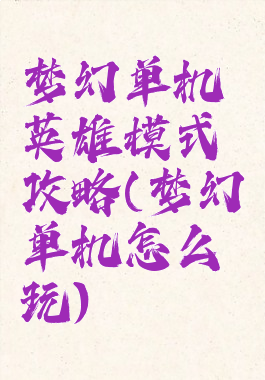 梦幻单机
英雄模式
攻略(梦幻
单机怎么
玩)